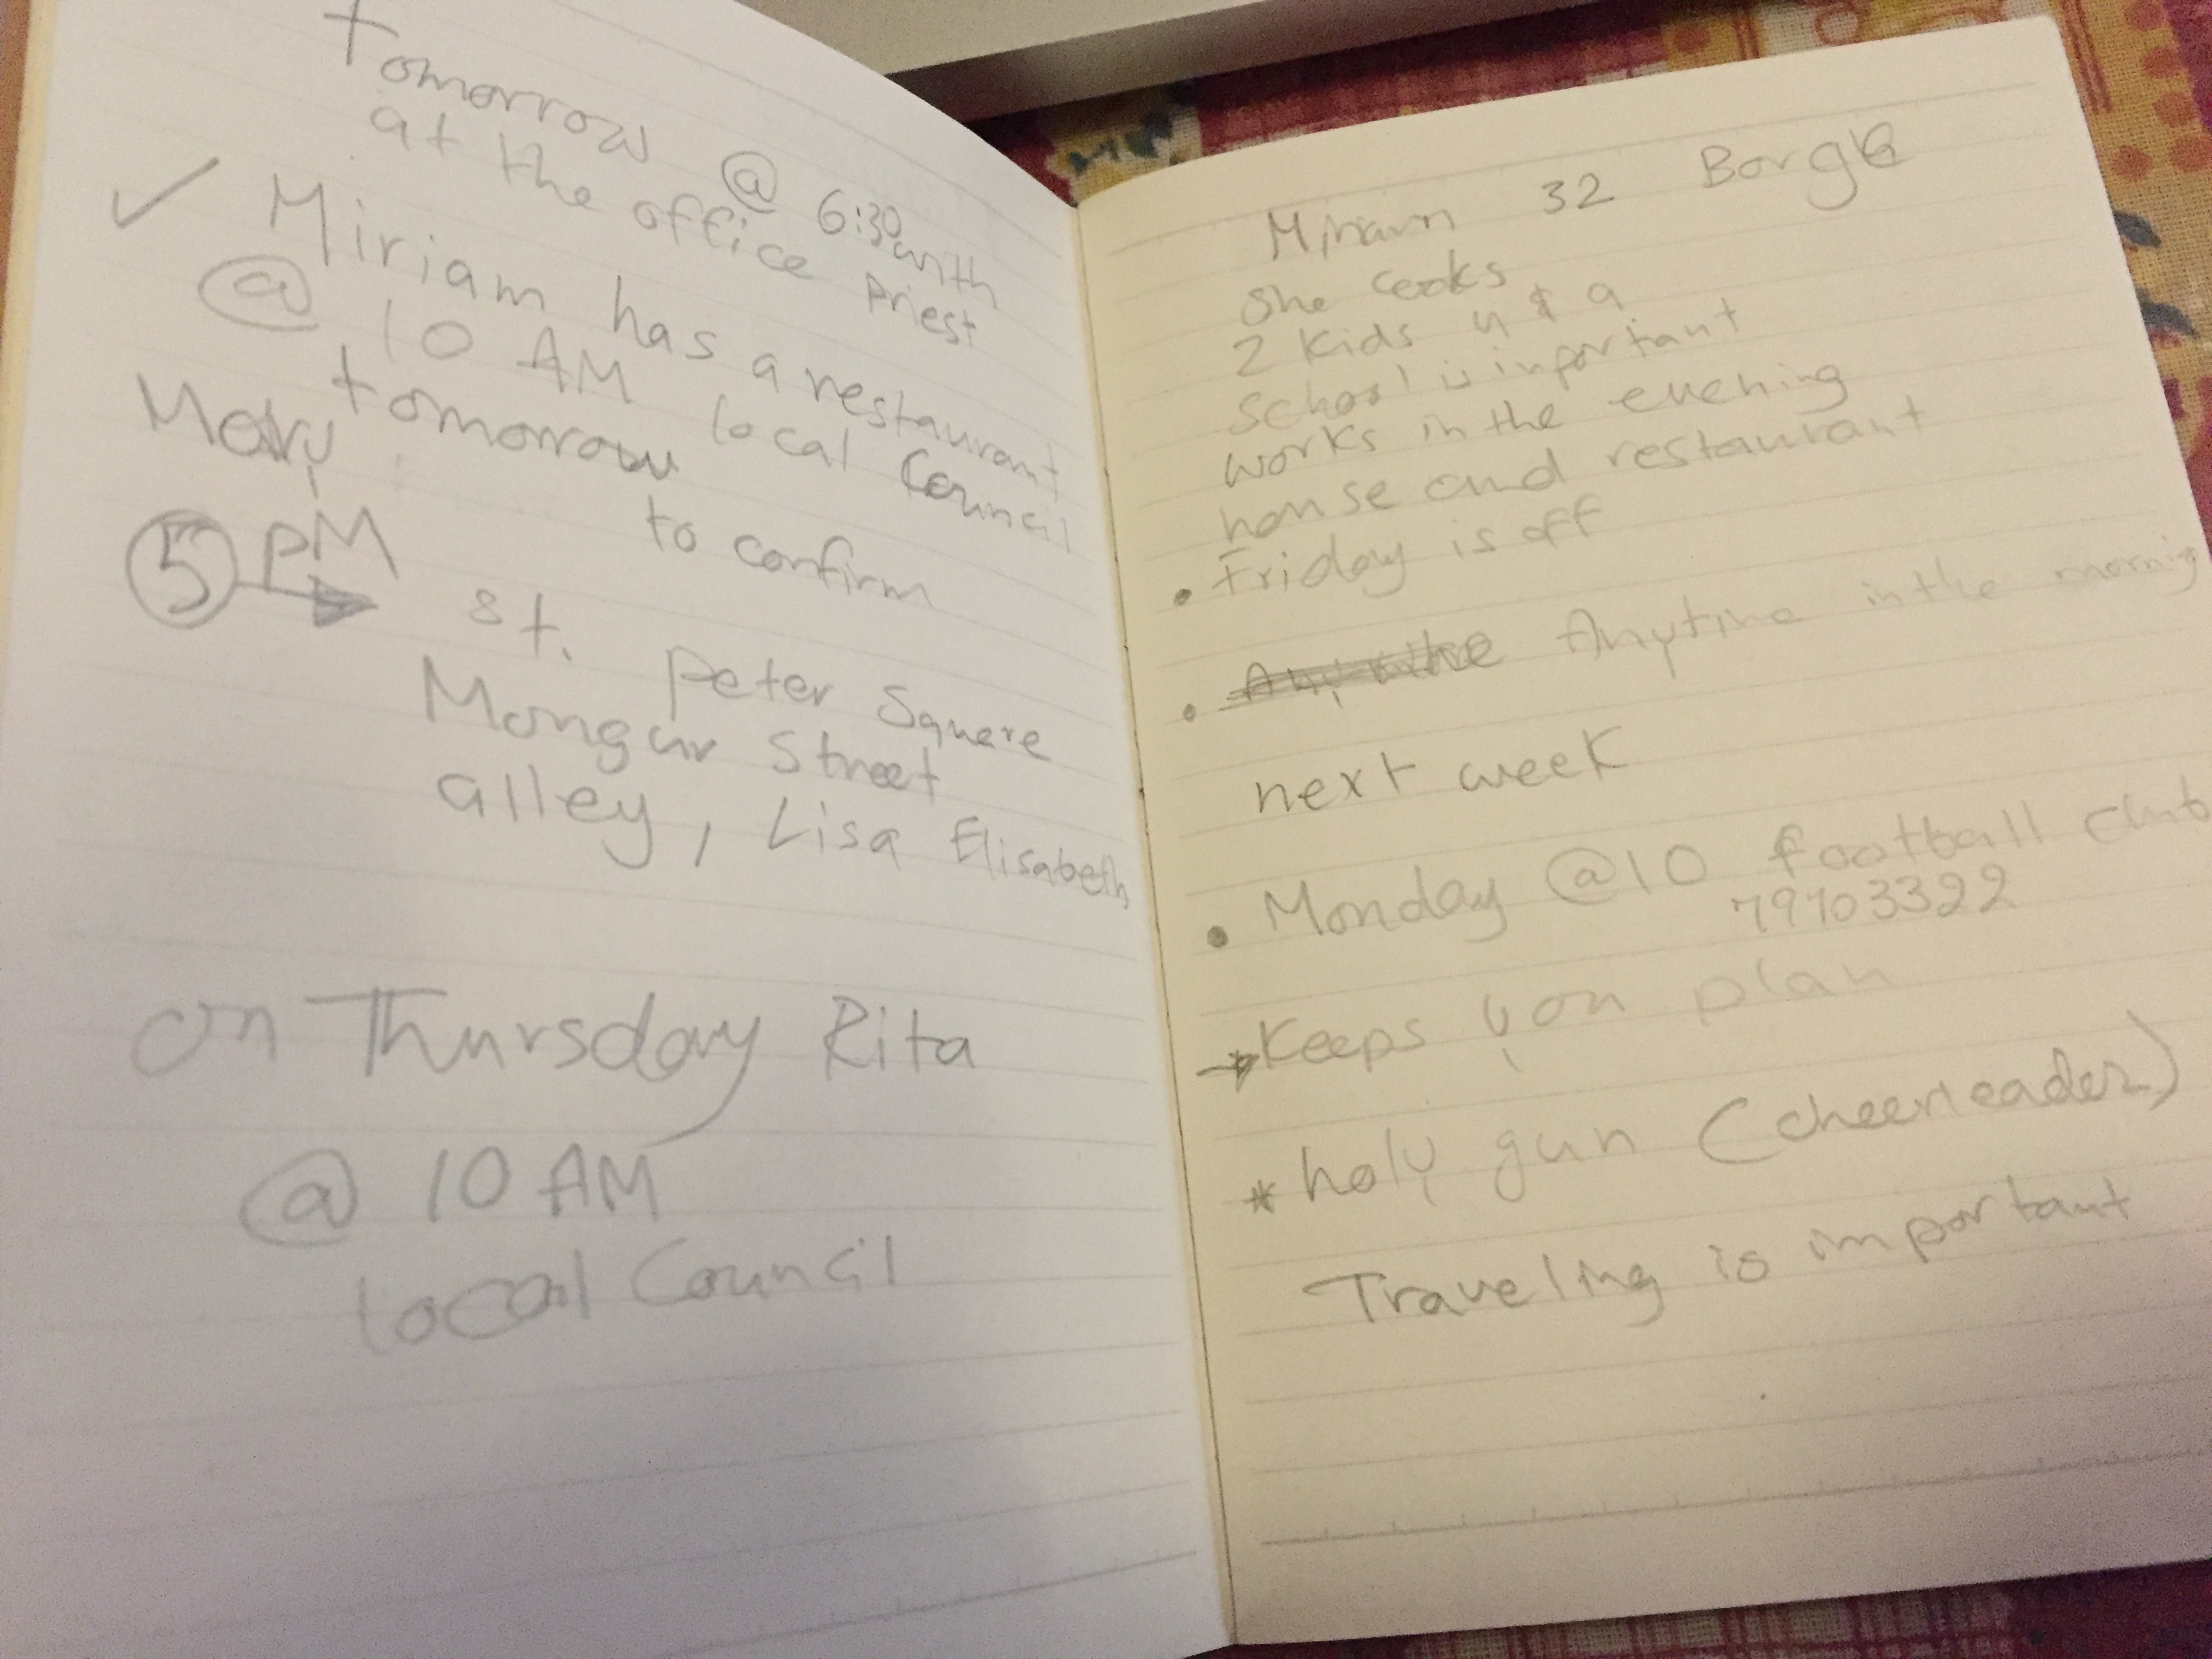 Tomorrow @ 6:30 with
at the office Priest
✓ Miriam has a restaurant
@ 10 AM local Council
Mary tomorrow to confirm
5 PM
→ St. Peter Square
Street
alley, Lisa Elisabeth
on Thursday Rita
@ 10 AM
local Council
32
She cooks
2 kids 4 & 9
School is important
works in the evening
house and restaurant
• Friday is off
• Anytime in the mornig
next week
• Monday @ 10 football club
79103322
→ Keeps you plan
* holy gun (cheerleader)
Traveling is important